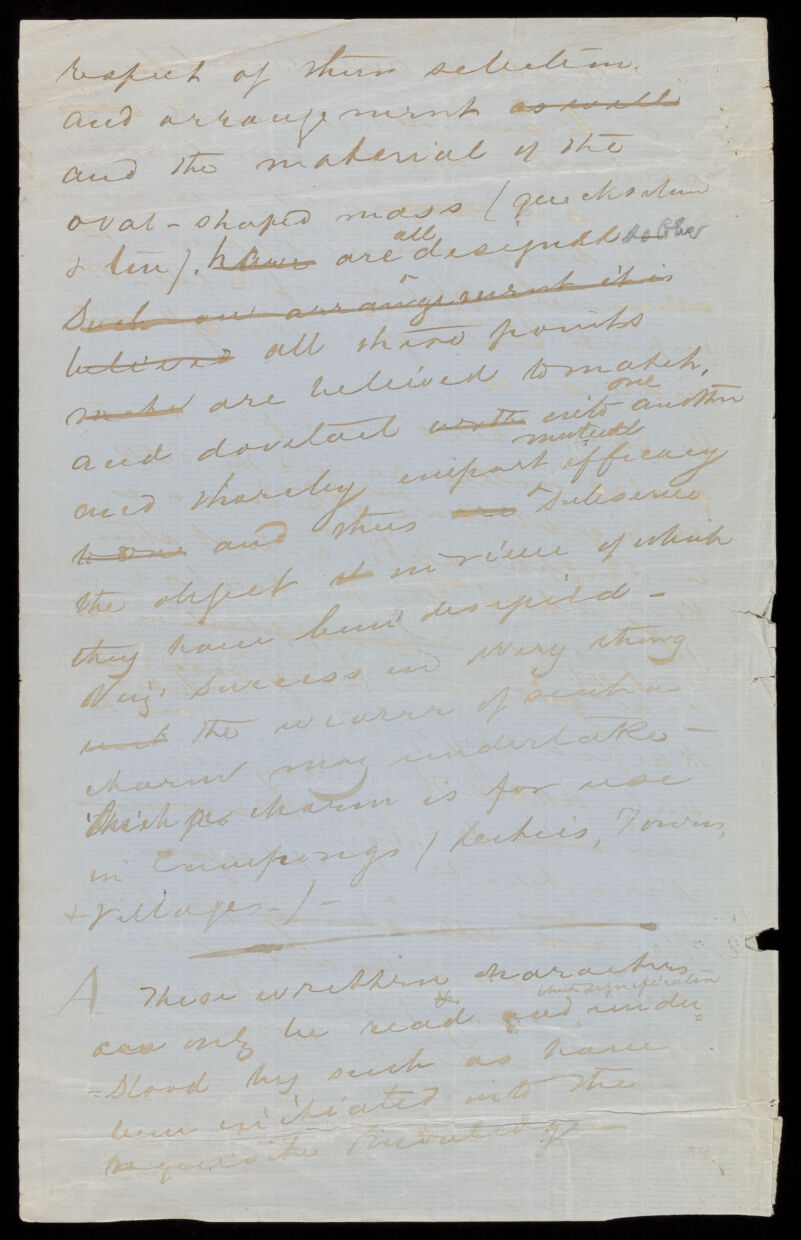 respect of their selection.
and arrangement as well
and the material of the
oval-shaped mass (quicksilver
& tin). have are all designed
Such an arrangement it is
believed all these points
make are believed to match,
and dovetail with into one another
and thereby impart mutual efficacy
and thus are subserve
the object in view of which
they have been designed -
Viz: Success in every thing
the wearer of such a
charm may undertake -
This charm is for use
in Campongs (Towns,
& Villages -) -
A These written characters
can only be read & their signification under=
=stood by such as have
been initiated into the
requisite knowledge -